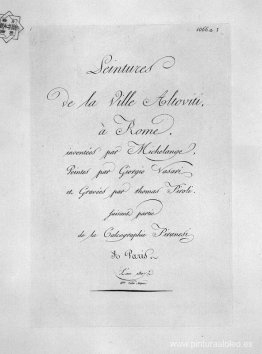 1066 a 1
Peintures
de la Ville Altoviti,
à Rome,
inventées par Michelange,
Peintes par Giorgio Vasari
et Gravées par thomas Piroli.
faisant partie
de la Calcographie Piranesi
à Paris
www.pinturasaloleo.es